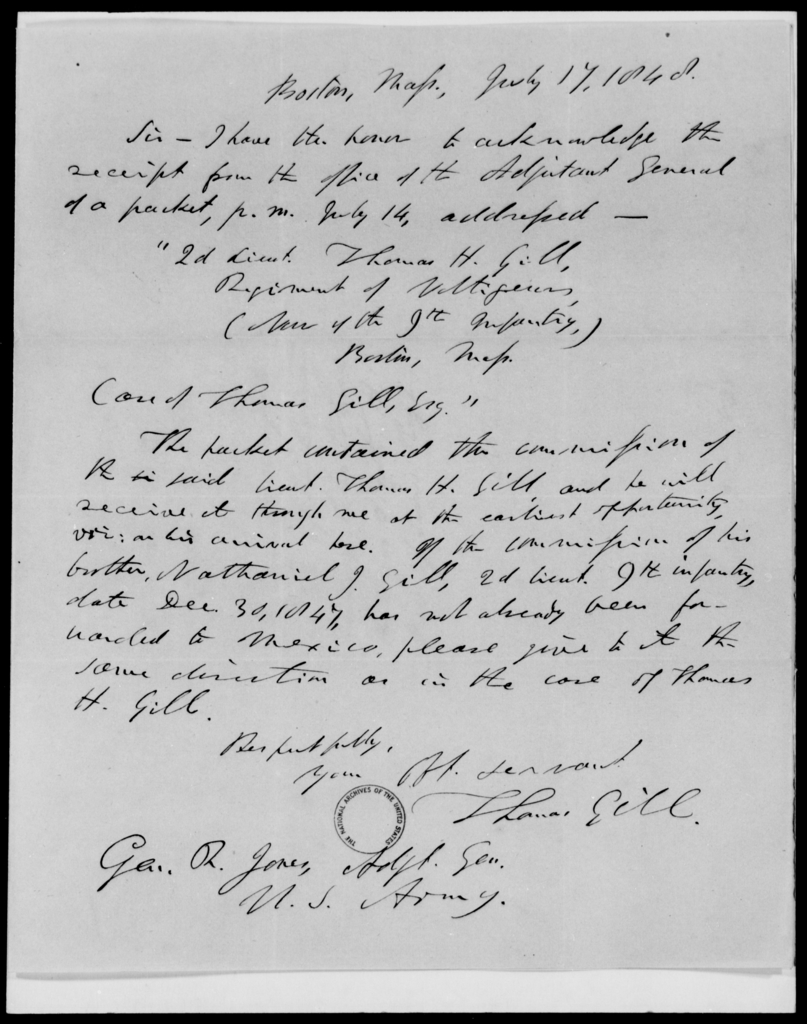 Boston, Mass., July 17, 1848.
Sir — I have the honor to acknowledge the
receipt from the office of the Adjutant General
of a packet, p. m. July 14, addressed —
"2d Lieut. Thomas H. Gill,
Regiment of Voltigeurs,
(Now of the 9th Infantry,)
Boston, Mass.
Care of Thomas Gill, Esq."
The packet contained the commission of
the said Lieut. Thomas H. Gill, and he will
receive it through me at the earliest opportunity,
viz: on his arrival here. If the commission of his
brother, Nathaniel J. Gill, 2d Lieut. 9th infantry,
date Dec. 30, 1847, has not already been for-
warded to Mexico, please give to it the
same direction as in the case of Thomas
H. Gill.
Respectfully,
your Obt. servant
Thomas Gill.
THE NATIONAL ARCHIVES OF THE UNITED STATES
Gen. R. Jones, Adjt. Gen.
U. S. Army.